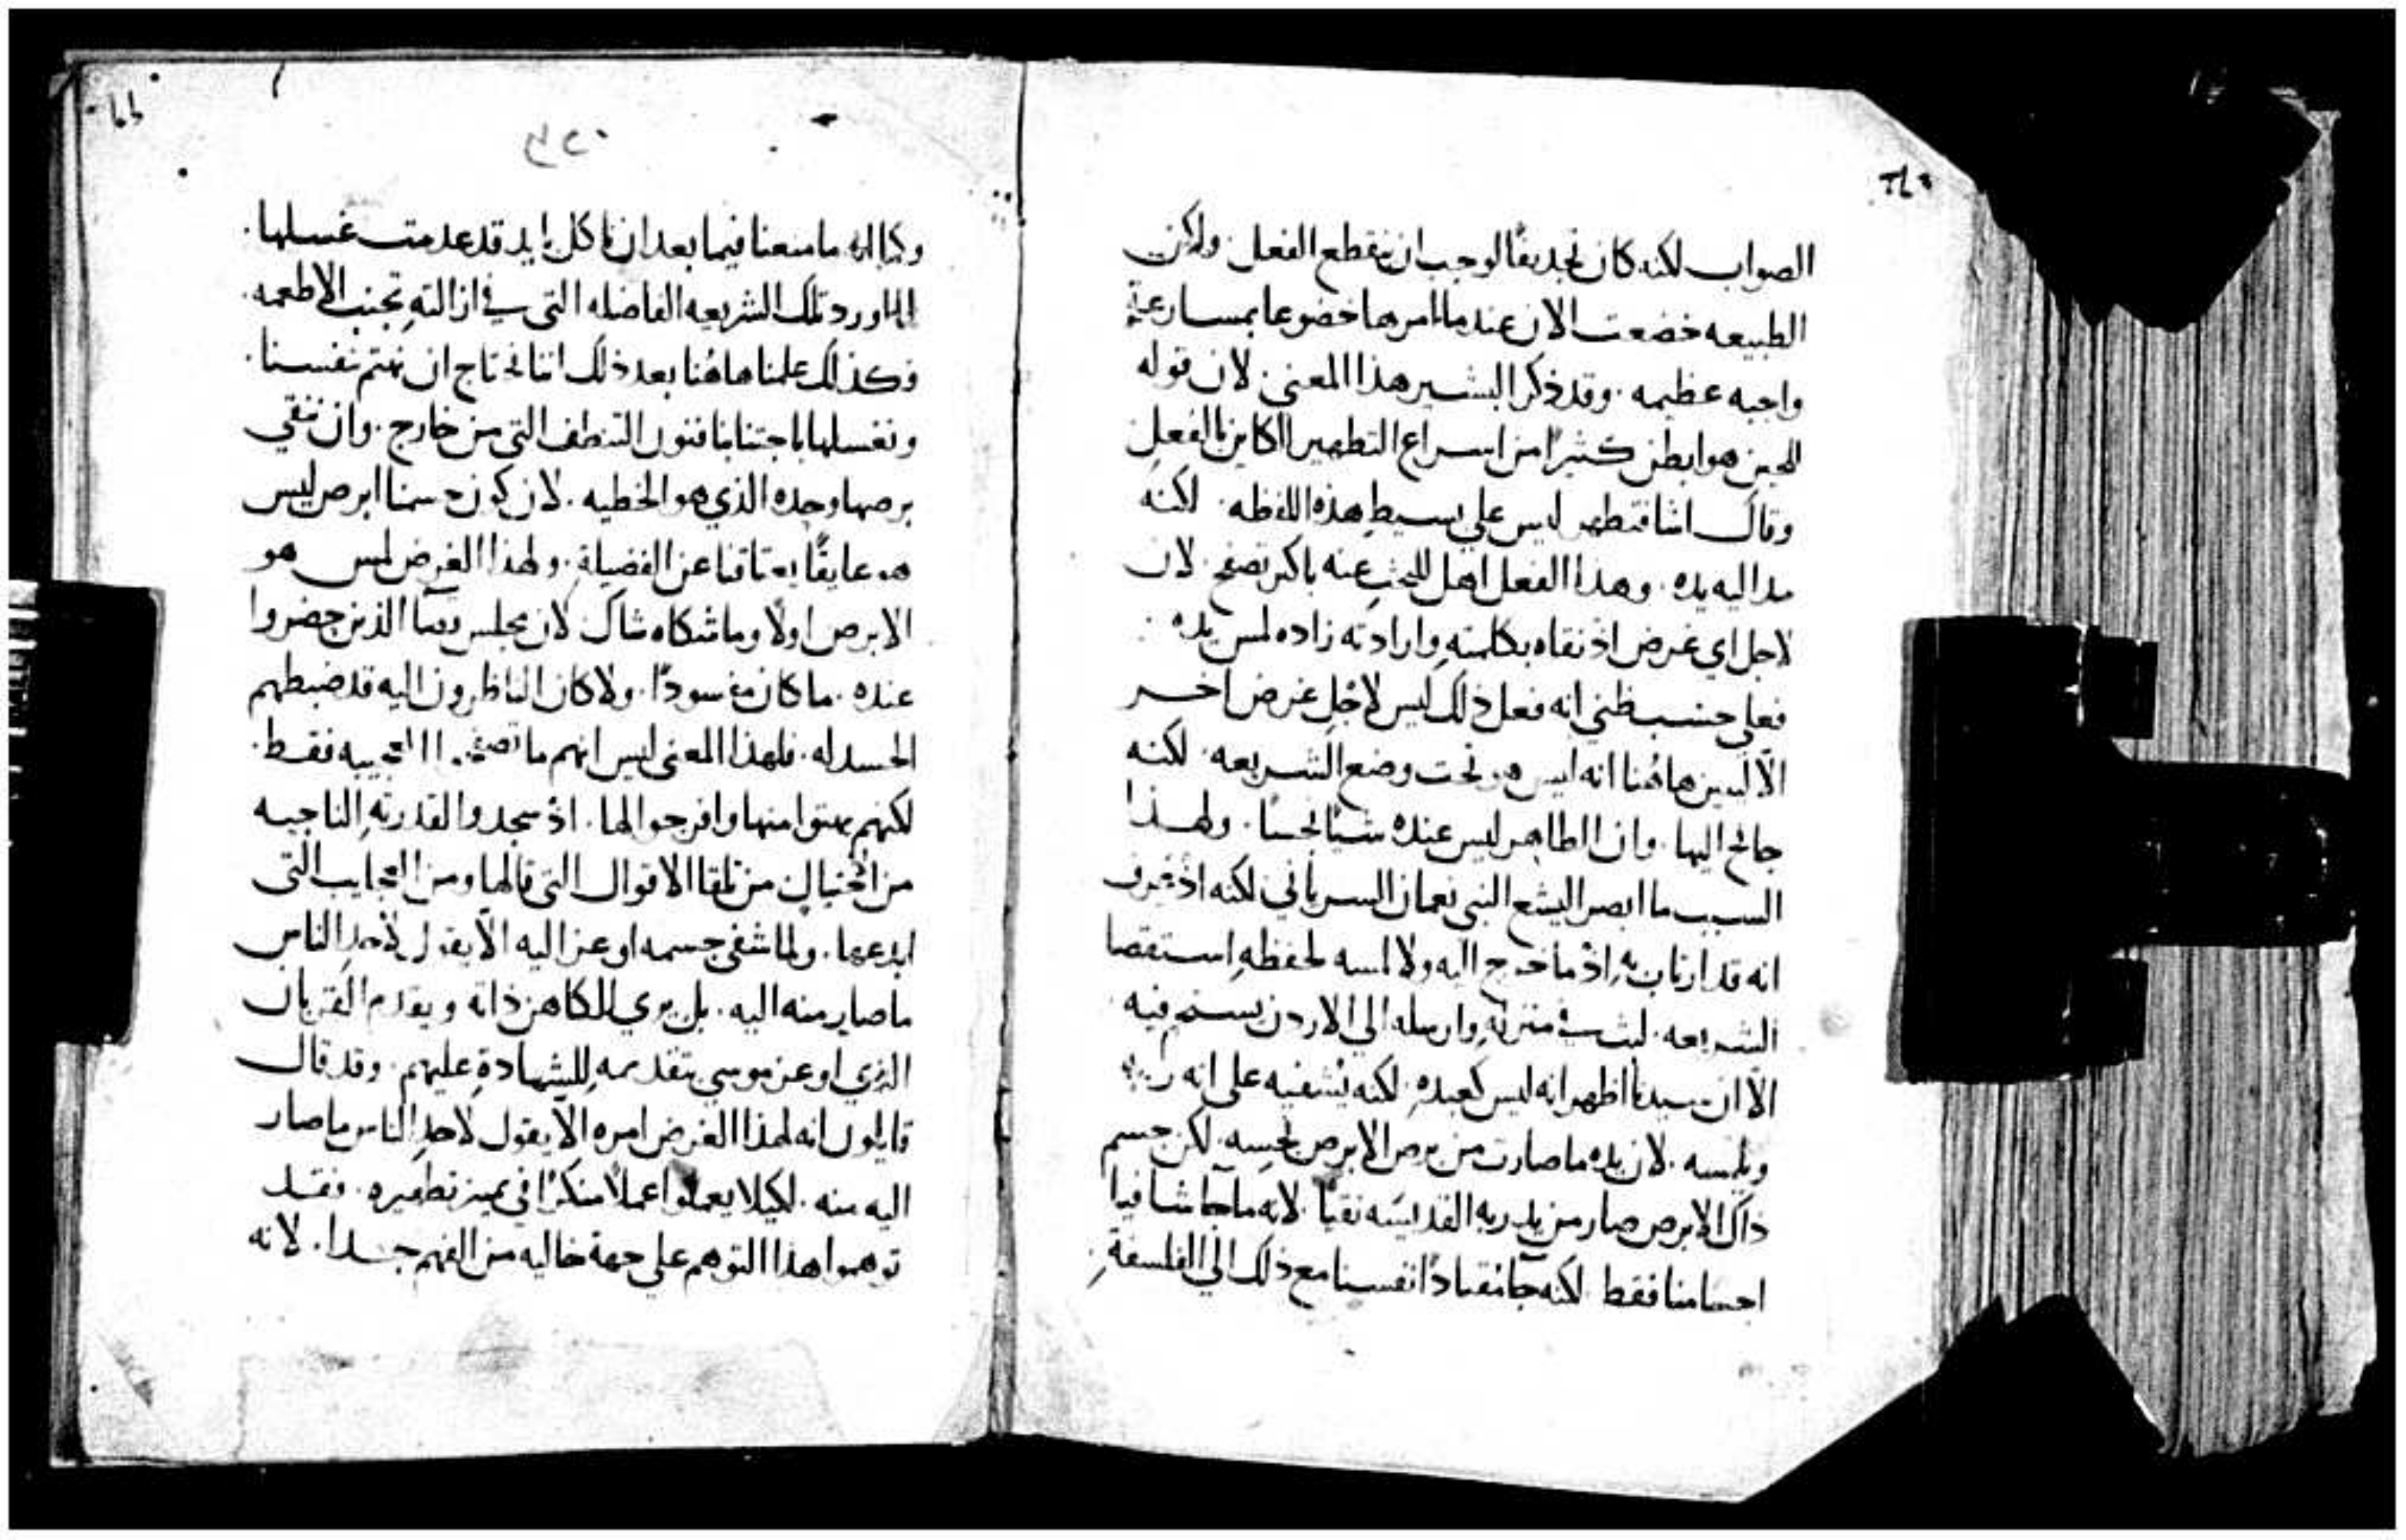 الصواب لكنه كان تجديفًا لوجب ان ينقطع الفعل. ولكن
الطبيعه خضعت الان عندما امرها خضوعا بمسارعة
واجبه عظيمه. وقد ذكر البشير هذا المعنى. لان قوله
للحين هو ابطى كثيرًا من اسراع التطهير الكاين بالفعل
وقال اشا فتطهر ليس علي بسيط هذه اللفظه. لكنه
مد اليه يده. وهذا الفعل اهل للبحث عنه باكثر تصفح. لان
لاجل اي غرض اذ نقاه بكلمته وارادته زاده لمس يده
فعلي حسب ظني انه فعل ذلك ليس لاجل غرض اخر
الّا ليبين هاهُنا انه ليس هو تحت وضع الشريعه. لكنه
اليها. وان الطاهر ليس عنده شيًا نجسًا. ولهذا
السبب ما ابصر اليشع النبي نعمان السرياني لكنه اذ عرف
انه قد ارتاب به اذ ما خرج اليه ولا لمسه لحفظه استقصا
الشريعه. لبث في منزله وارسله الي الاردن يستحم فيه
الّا ان سيدنا اظهر انه ليس كعبدٍ. لكنه يُشفيه على انه ربٌ
ويلمسه. لان يده ما صارت من برص الابرص نجسه. لكن جسم
ذاك الابرص صار من يد ربه القديسه نقيًا. لانه ما جا شافيا
اجسامنا فقط. لكنه جآ مقتادًا نفسنا مع ذلك الي الفلسفة
وكما انه ما منعنا فيما بعد ان ناكل بايد قد عدمت غسلها.
لما اورد تلك الشريعه الفاضله التي في ازالته تجنب الاطعمه.
فكذلك علمنا هاهُنا بعد ذلك اننا نحتاج ان نهتم بنفسنا.
ونغسلها باجتنابنا فنون التنظف التي من خارج. وان ننقي
برصها وحده الذي هو الخطيه. لان كون جسمنا ابرص ليس
هو عايقًا يعتاقنا عن الفضيلة. ولهذا الغرض لمس هو
الابرص اولًا وما شكاه شاك. لان مجلس قضآ الذين حضروا
عنده. ما كان مفسودًا. ولا كان الناظرون اليه قد ضبطهم
الحسد له. فلهذا المعنى ليس انهم ما العجيبه فقط.
لكنهم بهتوا منها وافرجوا لها. اذ سجدوا لقدرته الناجيه
من من تلقا الاقوال التي قالها ومن العجايب التي
ابدعها. ولما شفى جسمه اوعز اليه الّا يقول لاحد الناس
ما صار منه اليه. بل يري للكاهن ذاته ويقدم القربان
الذي اوعز موسي بتقديمه للشهادة عليهم. وقد قال
قايلون انه لهذا الغرض امره الّا يقول لاحد الناس ما صار
اليه منه. لكيلا يعملوا عملًا منكرًا في تمييز تطهيره. فقد
توهموا هذا التوهم على جهة خاليه من الفهم جدا. لانه